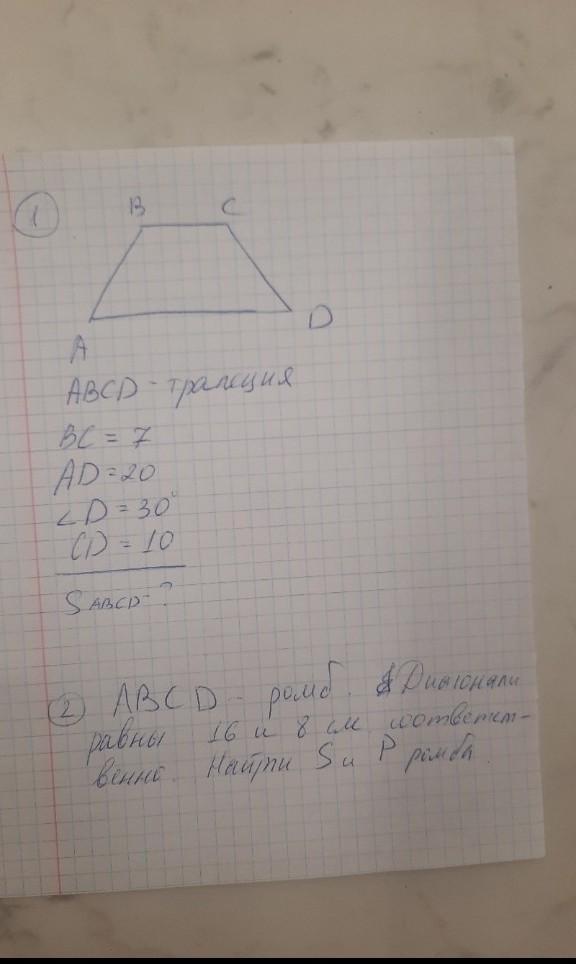 1
B C
A D
ABCD - трапеция
BC = 7
AD = 20
∠D = 30°
CD = 10
S ABCD - ?
2 ABCD - ромб. Диагонали
равны 16 и 8 см соответст-
венно. Найти S и P ромба.